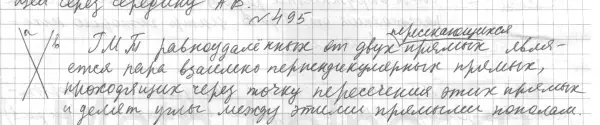 щей через середину АВ.
№ 495
пересекающихся
a b ГМТ равноудалённых от двух прямых явля-
ется пара взаимно перпендикулярных прямых,
проходящих через точку пересечения этих прямых
и делят углы между этими прямыми пополам.